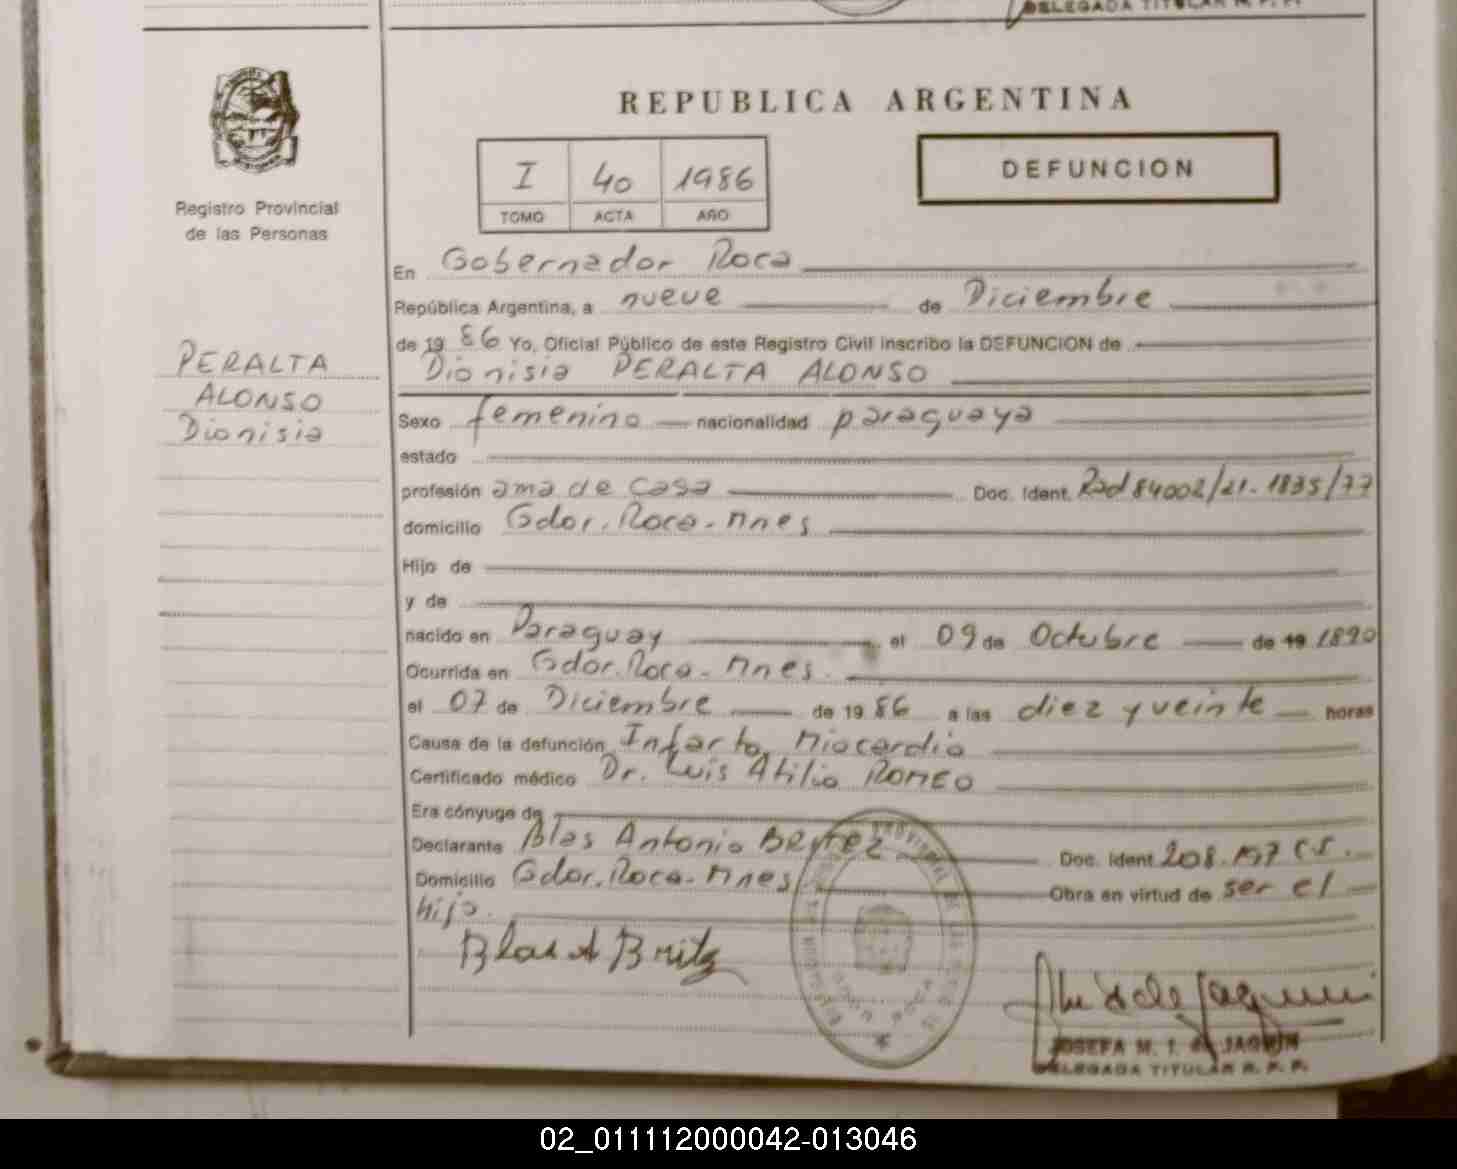 DELEGADA TITULAR R. P. P.
REPUBLICA ARGENTINA
DEFUNCION
I 40 1986
TOMO ACTA AÑO
Registro Provincial
de las Personas
En Gobernador Roca
República Argentina, a nueve de Diciembre
de 19 86 Yo, Oficial Público de este Registro Civil inscribo la DEFUNCION de
PERALTA
ALONSO
Dionisia
Dionisia PERALTA ALONSO
Sexo femenino nacionalidad paraguaya
estado
profesión ama de casa Doc. Ident. Rad 84002/21-1835/77
domicilio Gdor. Roca - Mnes
Hijo de
y de
nacido en Paraguay el 09 de Octubre de 19 1890
Ocurrida en Gdor. Roca - Mnes.
el 07 de Diciembre de 19 86 a las diez y veinte horas
Causa de la defunción Infarto Miocardio
Certificado médico Dr. Luis Atilio ROMEO
Era cónyuge de
Declarante Blas Antonio Doc. Ident. 208.
Domicilio Gdor. Roca - Mnes Obra en virtud de ser el
hijo.
Blas A Britz
JOSEFA M. I. de JAQUIN
DELEGADA TITULAR R. P. P.
02_011112000042-013046